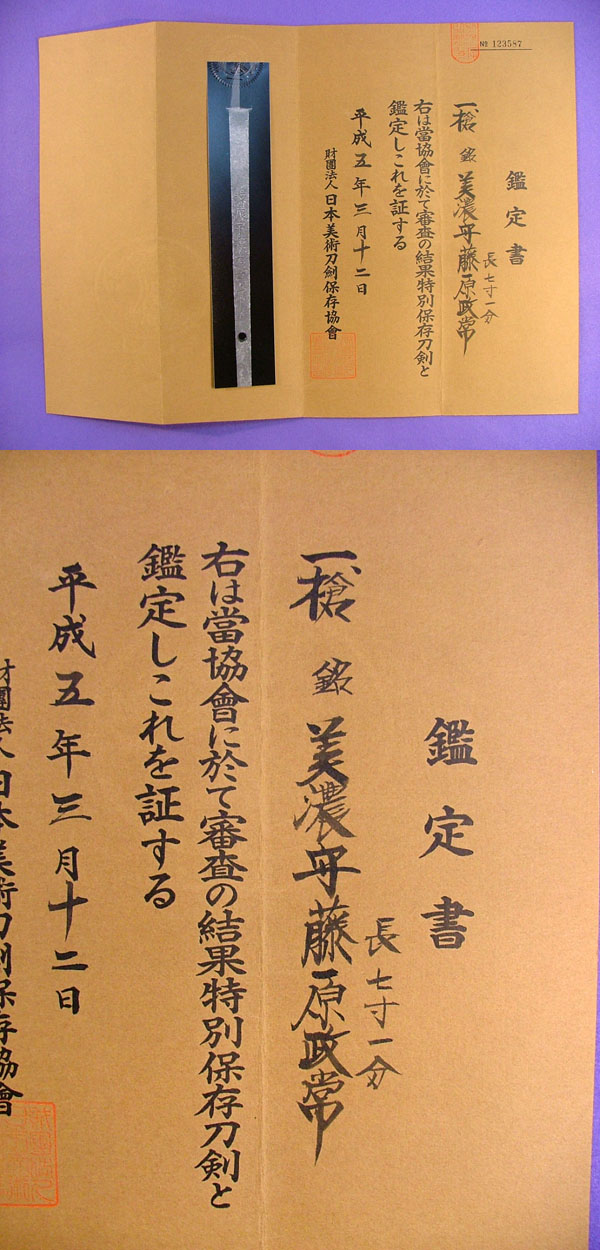 № 123587
鑑定書
一槍 銘 美濃守藤原政常
長七寸一分
右は當協會に於て審査の結果特別保存刀剣と
鑑定しこれを証する
平成五年三月十二日
財團法人日本美術刀劍保存協會
鑑定書
一槍 銘 美濃守藤原政常
長七寸一分
右は當協會に於て審査の結果特別保存刀剣と
鑑定しこれを証する
平成五年三月十二日
財團法人日本美術刀劍保存協會